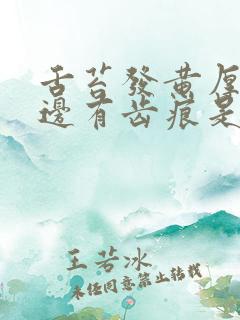 舌苔發黃厚
邊有齿痕是
王若冰
未经同意禁止转载